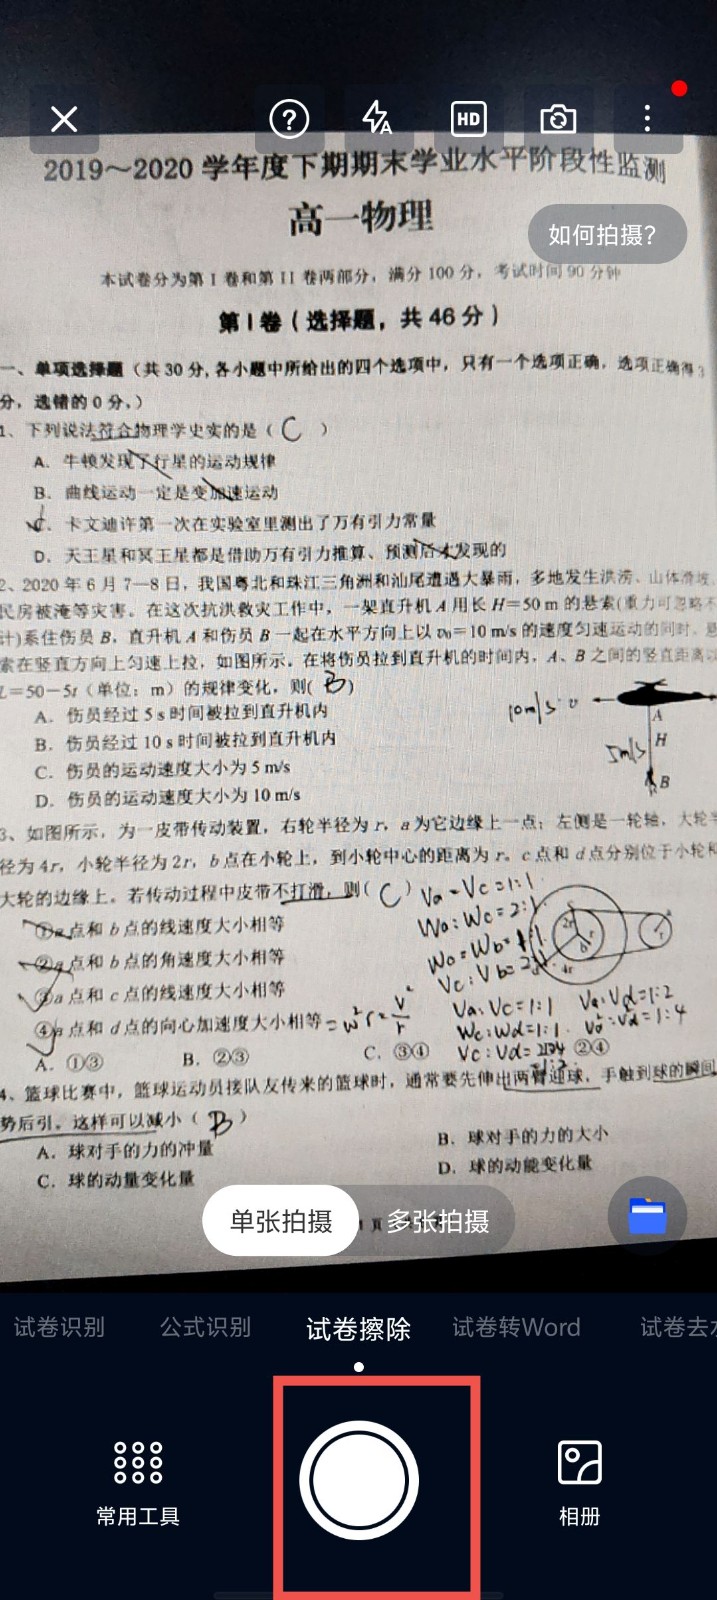 HD
2019～2020 学年度下期期末学业水平阶段性监测
高一物理
如何拍摄?
本试卷分为第 I 卷和第 II 卷两部分，满分 100 分，考试时间 90 分钟
第 I 卷（选择题，共 46 分）
一、单项选择题（共 30 分, 各小题中所给出的四个选项中，只有一个选项正确，选项正确得 3
分，选错的 0 分。）
1、下列说法符合物理学史实的是（ C ）
A．牛顿发现了行星的运动规律
B．曲线运动一定是变加速运动
C．卡文迪许第一次在实验室里测出了万有引力常量
D．天王星和冥王星都是借助万有引力推算、预测后才发现的
2、2020 年 6 月 7—8 日，我国粤北和珠江三角洲和汕尾遭遇大暴雨，多地发生洪涝、山体滑坡、
民房被淹等灾害。在这次抗洪救灾工作中，一架直升机 A 用长 H＝50 m 的悬索(重力可忽略不
计)系住伤员 B，直升机 A 和伤员 B 一起在水平方向上以 v₀＝10 m/s 的速度匀速运动的同时，悬
索在竖直方向上匀速上拉，如图所示．在将伤员拉到直升机的时间内，A、B 之间的竖直距离以
L＝50－5t（单位：m）的规律变化，则( B )
A．伤员经过 5 s 时间被拉到直升机内
B．伤员经过 10 s 时间被拉到直升机内
C．伤员的运动速度大小为 5 m/s
D．伤员的运动速度大小为 10 m/s
10m/s υ
A
H
5m/s
B
3、如图所示，为一皮带传动装置，右轮半径为 r，a 为它边缘上一点；左侧是一轮轴，大轮半
径为 4r，小轮半径为 2r，b 点在小轮上，到小轮中心的距离为 r。c 点和 d 点分别位于小轮和
大轮的边缘上。若传动过程中皮带不打滑，则( C )
Va-Vc=1:1
Wa:Wc=2:1
①a 点和 b 点的线速度大小相等
②a 点和 b 点的角速度大小相等
③a 点和 c 点的线速度大小相等
④a 点和 d 点的向心加速度大小相等
=w²r=v²/r
Va:Vc=1:1 Va:Vd=1:2
Wc:Wd=1:1
A．①③ B．②③ C．③④ ②④
4、篮球比赛中，篮球运动员接队友传来的篮球时，通常要先伸出两臂迎球，手触到球的瞬间
势后引。这样可以减小（ B ）
A．球对手的力的冲量 B．球对手的力的大小
C．球的动量变化量 D．球的动能变化量
单张拍摄 多张拍摄
试卷识别 公式识别 试卷擦除 试卷转Word 试卷去
常用工具 相册